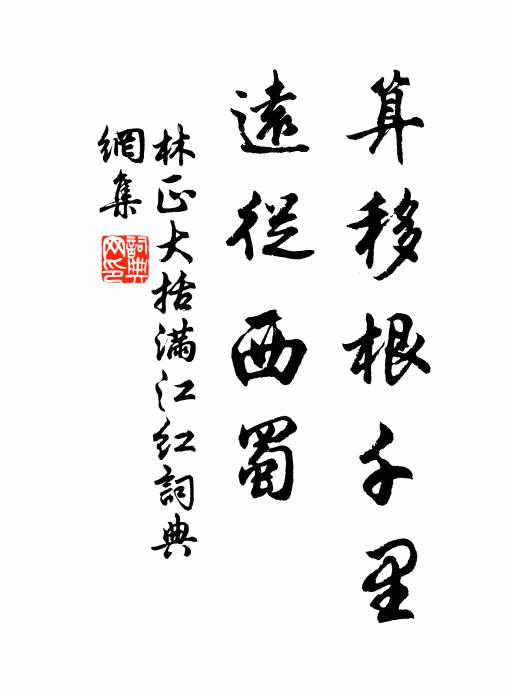 算移根千里
遠從西蜀
林正大括滿江紅詞典
網集
詞典
网印